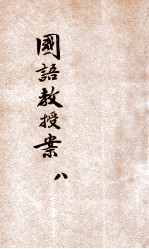 國語教授案 八